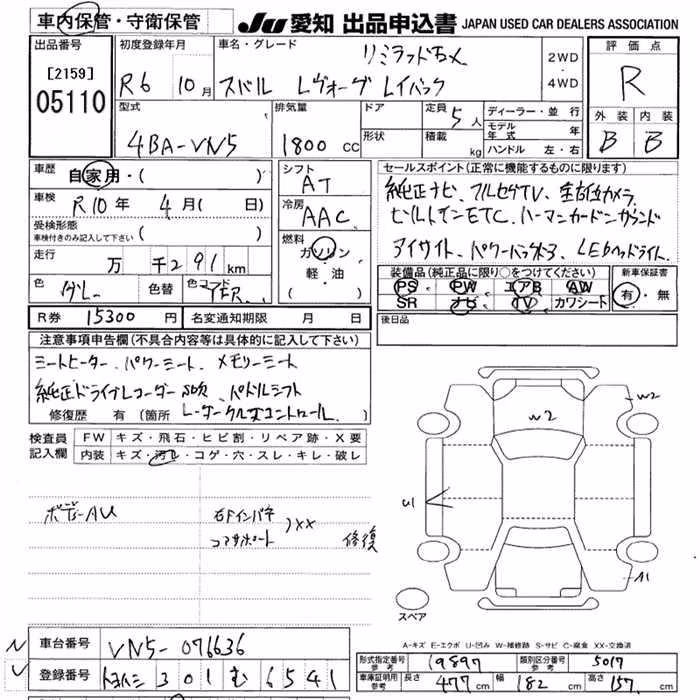 車内保管・守衛保管
JU 愛知 出品申込書 JAPAN USED CAR DEALERS ASSOCIATION
出品番号
[2159]
05110
初度登録年月
R6 10月
車名・グレード
リミテッドEX
スバル レヴォーグ レイバック
2WD
・
4WD
評価点
R
外装 内装
B B
型式
4BA-VN5
排気量
1800 cc
ドア
形状
定員 5人
積載 kg
ディーラー・並行
モデル年式 年
ハンドル 左・右
車歴
自家用・( )
車検
R10年 4月( 日)
受検形態
車検付きのみ記入して下さい ( )
走行
万 千291km
色
グレー
色替
色コード
シフト
AT
冷房
AAC
燃料
ガソリン
軽・油
( )
セールスポイント(正常に機能するものに限ります)
純正ナビ、フルセグTV、全方位カメラ
ビルトインETC、ハーマンカードンサウンド
アイサイト、パワーバックドア、LEDヘッドライト、
装備品(純正品に限り○をつけてください)
PS PW エアB AW
SR ナビ TV カワシート
新車保証書
有・無
R券 15300円
名変通知期限 月 日
後日品
注意事項申告欄(不具合内容等は具体的に記入して下さい)
シートヒーター、パワーシート、メモリーシート
純正ドライブレコーダー パドルシフト
修復歴 有(箇所 レーダークルーズコントロール )
検査員
記入欄
FW キズ・飛石・ヒビ割・リペア跡・X要
内装 キズ・汚レ・コゲ・穴・スレ・キレ・破レ
ボデーAU
右Fインパネ
コアサポート
)XX
修復
W2
W2
U1
A1
スペア
A-キズ E-エクボ U-凹み W-補修跡 S-サビ C-腐食 XX-交換済
車台番号
VN5-076636
登録番号
301 む 6541
形式指定番号 参考 19897
類別区分番号 参考 5017
車庫証明用 参考 長さ 477cm 幅 182cm 高さ 157cm